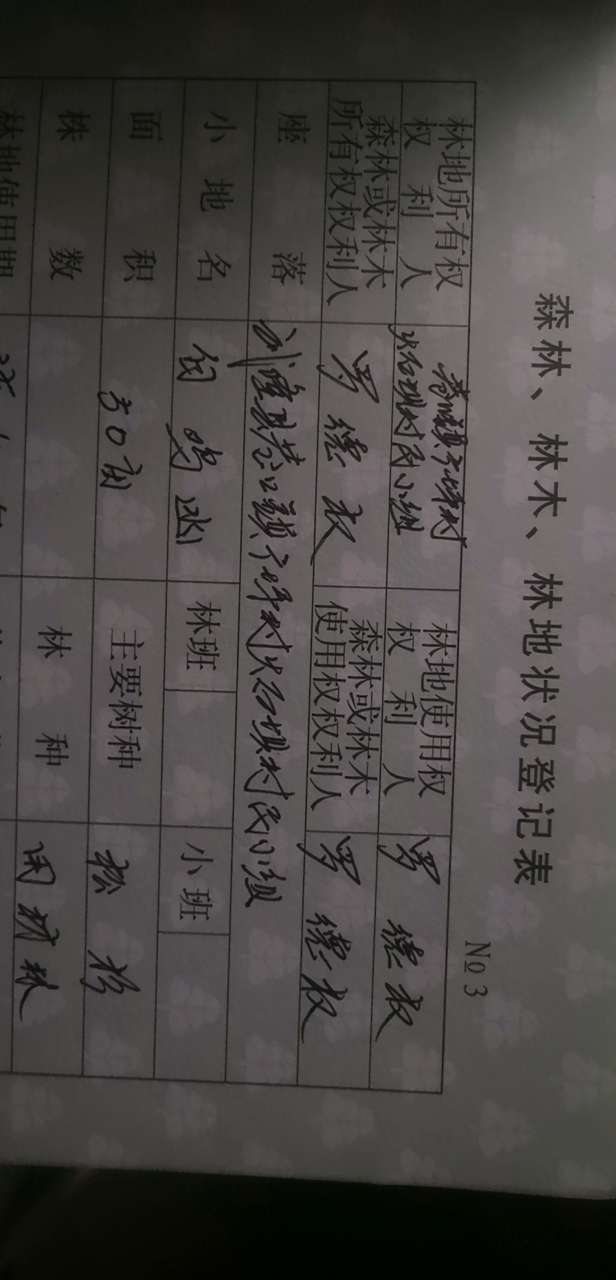 森林、林木、林地状况登记表
№ 3
林地所有权权利人
村民小组
林地使用权权利人
罗德权
森林或林木所有权权利人
罗德权
森林或林木使用权权利人
罗德权
座落
村火石坝村民小组
小地名
林班
小班
面积
主要树种
松 杉
株数
林种
用材林
林地使用期